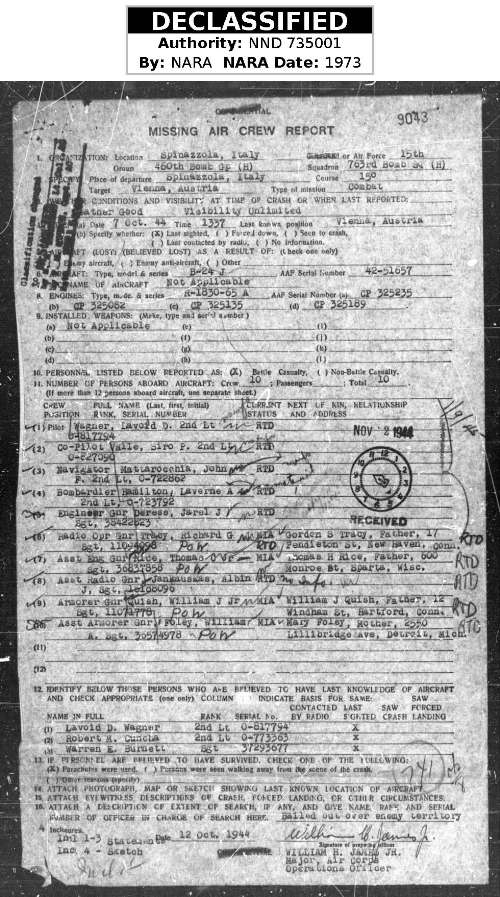 DECLASSIFIED
Authority: NND 735001
By: NARA NARA Date: 1973
9043
MISSING AIR CREW REPORT
1. ORGANIZATION: Location Spinazzola, Italy or Air Force 15th
Group 460th Bomb Gp (H) Squadron 763rd Bomb Sq (H)
SPECIFY: Place of departure Spinazzola, Italy Course 150
Target Vienna, Austria Type of mission Combat
CONDITIONS AND VISIBILITY AT TIME OF CRASH OR WHEN LAST REPORTED:
Weather Good Visibility Unlimited
Date 7 Oct. 44 Time 1357 Last known position Vienna, Austria
(b) Specify whether: (X) Last sighted, ( ) Forced down, ( ) Seen to crash,
( ) Last contacted by radio, ( ) No information.
AIRCRAFT (LOST) (BELIEVED LOST) AS A RESULT OF: (Check one only)
Enemy aircraft, ( ) Enemy anti-aircraft, ( ) Other
6. AIRCRAFT: Type, model & series B-24 J AAF Serial Number 42-51657
NAME OF AIRCRAFT Not Applicable
8. ENGINES: Type, mode & series R-1830-65 A AAF Serial Number (a) CP 325235
(b) CP 325082 (c) CP 325135 (d) CP 325189
9. INSTALLED WEAPONS: (Make, type and serial number)
(a) Not Applicable (e) (i)
(b) (f) (j)
(c) (g) (k)
(d) (h) (l)
10. PERSONNEL LISTED BELOW REPORTED AS: (X) Battle Casualty, ( ) Non-Battle Casualty.
11. NUMBER OF PERSONS ABOARD AIRCRAFT: Crew 10 ; Passengers ; Total 10
(If more than 12 persons aboard aircraft, use separate sheet.)
CREW FULL NAME (Last, first, initial) CURRENT NEXT OF KIN, RELATIONSHIP
POSITION RANK, SERIAL NUMBER STATUS AND ADDRESS
(1) Pilot Wagner, Lavoid D. 2nd Lt RTD NOV 2 1944
O-817794
(2) Co-Pilot Valle, Siro P. 2nd Lt RTD
(3) Navigator Mattarocchia, John RTD
F. 2nd Lt, O-722862
(4) Bombardier Hamilton, Laverne A RTD
2nd Lt, O-723792
(5) Engineer Gnr Derese, Jarel J RTD
Sgt, 38422823 RECEIVED
(6) Radio Opr Gnr Tracy, Richard G MIA Gordon S Tracy, Father, 17
Sgt, POW RTD Pendleton St, New Haven, Conn. RTD
(7) Asst Eng Gnr Rice, Thomas MIA Thomas H Rice, Father, 600
Sgt, 36837858 POW Monroe St, Sparta, Wisc. RTD
(8) Asst Radio Gnr Jankauskas, Albin RTD no info RTD
J, Sgt,
(9) Armorer Gnr Quish, William J Jr MIA William J Quish, Father, 12
Sgt, 11071778 POW Windham St, Hartford, Conn. RTD
Asst Armorer Gnr Foley, William MIA Mary Foley, Mother, 2550
A. Sgt, 36574978 POW Lillibridge Ave, Detroit, Mich.
(11)
(12)
12. IDENTIFY BELOW THOSE PERSONS WHO ARE BELIEVED TO HAVE LAST KNOWLEDGE OF AIRCRAFT
AND CHECK APPROPRIATE (one only) COLUMN INDICATE BASIS FOR SAME:
CONTACTED LAST SAW SAW FORCED
NAME IN FULL RANK SERIAL No. BY RADIO SIGHTED CRASH LANDING
(1) Lavoid D. Wagner 2nd Lt O-817794 X
(2) Robert M. Cuncha 2nd Lt O-773363 X
(3) Warren E. Burnett Sgt 37293677 X
13. IF PERSONNEL ARE BELIEVED TO HAVE SURVIVED, CHECK ONE OF THE FOLLOWING:
(X) Parachutes were used. ( ) Persons were seen walking away from the scene of the crash.
( ) Other reasons (specify)
14. ATTACH PHOTOGRAPH, MAP OR SKETCH SHOWING LAST KNOWN LOCATION OF AIRCRAFT.
15. ATTACH EYEWITNESS DESCRIPTIONS OF CRASH, FORCED LANDING, OR OTHER CIRCUMSTANCES.
16. ATTACH A DESCRIPTION OF EXTENT OF SEARCH, IF ANY, AND GIVE NAME, RANK AND SERIAL
NUMBER OF OFFICER IN CHARGE OF SEARCH HERE. Bailed out over enemy territory
4 Inclosures
Incl 1-3 Statements Date 12 Oct. 1944 William H. James Jr.
Signature of preparing officer
Inc. 4 - Sketch WILLIAM H. JAMES JR.
Major, Air Corps
Operations Officer